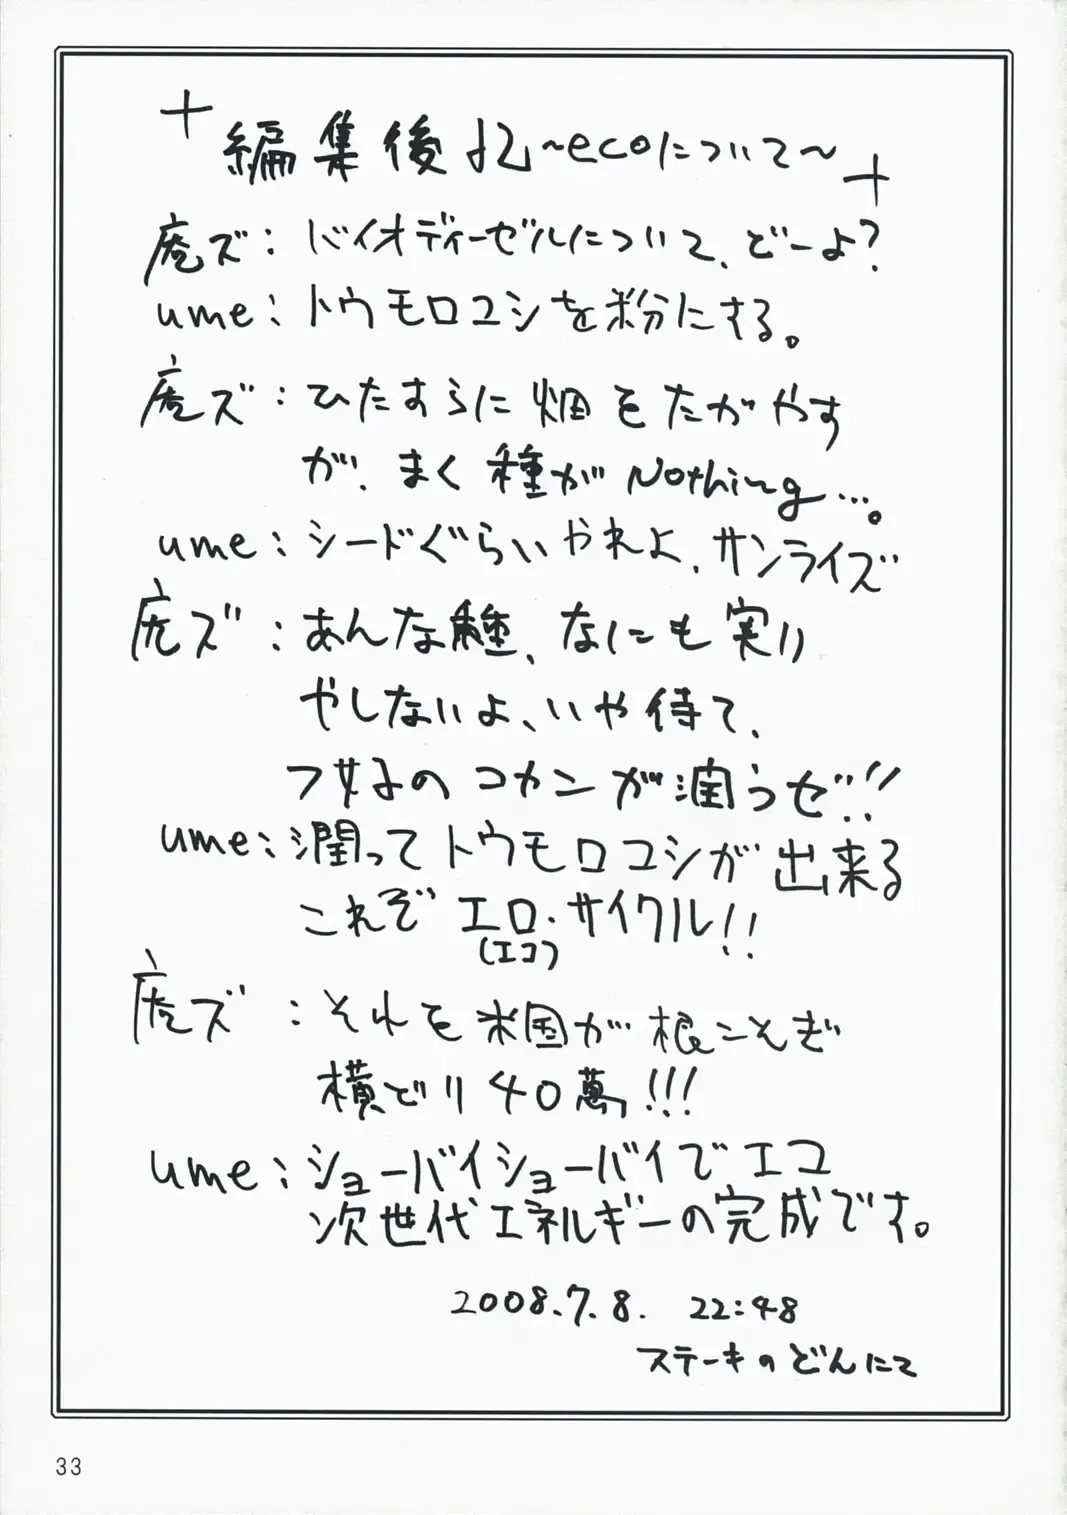 編集後記~ecoについて~
虎ズ:バイオディーゼルについて、どーよ?
ume:トウモロコシを粉にする。
虎ズ:ひたすらに畑をたがやす
が!まく種がNothing…。
ume:シードぐらいやれよ、サンライズ
虎ズ:あんな種、なにも実り
やしないよ、いや待て、
フ女子のコカンが潤うぜ!!
ume:潤ってトウモロコシが出来る
これぞエロ・サイクル!!
(エコ)
虎ズ:それを米国が根こそぎ
横どり40萬!!!
ume:ショーバイショーバイでエコ
次世代エネルギーの完成です。
2008.7.8. 22:48
ステーキのどんにて
33